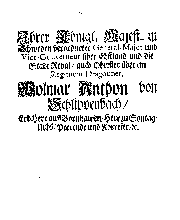 Ihrer Königl. Majest. zu
Schweden verordneter General-Major und
Vice-Gouverneur über Ehstland und die
Stadt Reval / auch Obrister über ein
Regiment Dragouner,
Wolmar Anthon von
Schlippenbach /
Erbherr auf Bornhausen, Herr zu